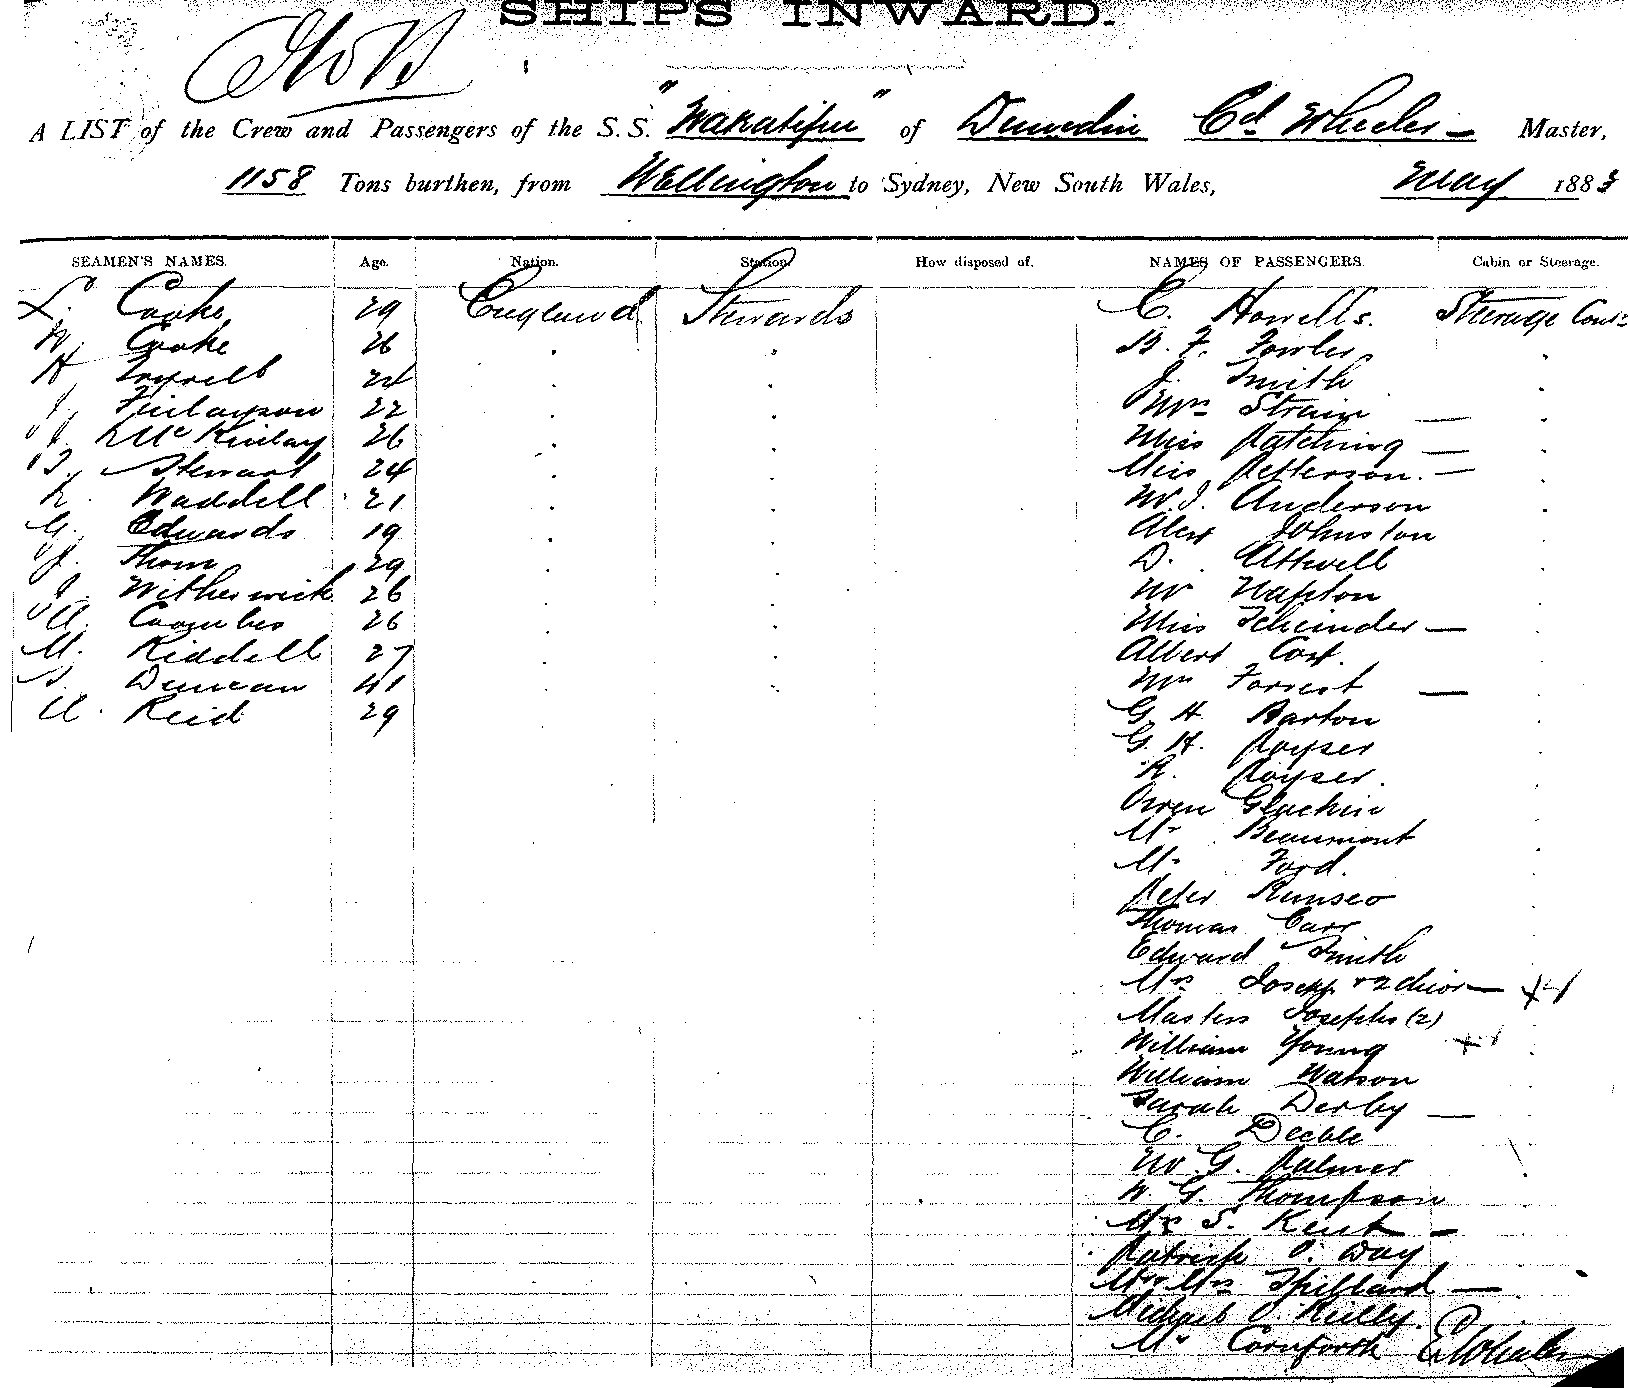 SHIPS INWARD.
A LIST of the Crew and Passengers of the S.S. "Wakatipu" of Dunedin Ed. Wheeler Master,
1158 Tons burthen, from Wellington to Sydney, New South Wales, May 1883
SEAMEN'S NAMES. Age. Nation. Station. How disposed of. NAMES OF PASSENGERS. Cabin or Steerage.
L. Cooke 29 England Stewards C. Howells. Steerage
W. Cooke 26 B. F. Fowler
H Tyrrell 24 J. Smith
J. Finlayson 22 Mrs Strain —
J. McKinlay 26 Miss Patching —
J. Stewart 24 Miss Petterson. —
R. Waddell 21 W. J. Anderson
G. Edwards 19 Alex Johnston
J. Thom 29 D. Attwell
J. Witherwick 26 W Napton
A. Coombes 26 Miss Scheinder —
M. Riddell 27 Albert Cox.
S. Duncan 41 Mrs Forrest —
A. Reid 29 G. H. Barton
G. H. Poyser
R. Poyser.
Owen Glackin
Mr Beaumont
Mr Ford.
Peter Rumseo
Thomas Carr
Edward Smith
Mrs Joseph + 2 —
Masters Josephs (2)
William Young
William Watson
Sarah Derby —
C. Deeble
W. G. Palmer
W. G. Thompson
Mrs S. Kent —
Patrick O. Day
Mr & Mrs Spillard —
Michael O. Reilly.
Mr Cornforth E Wheeler